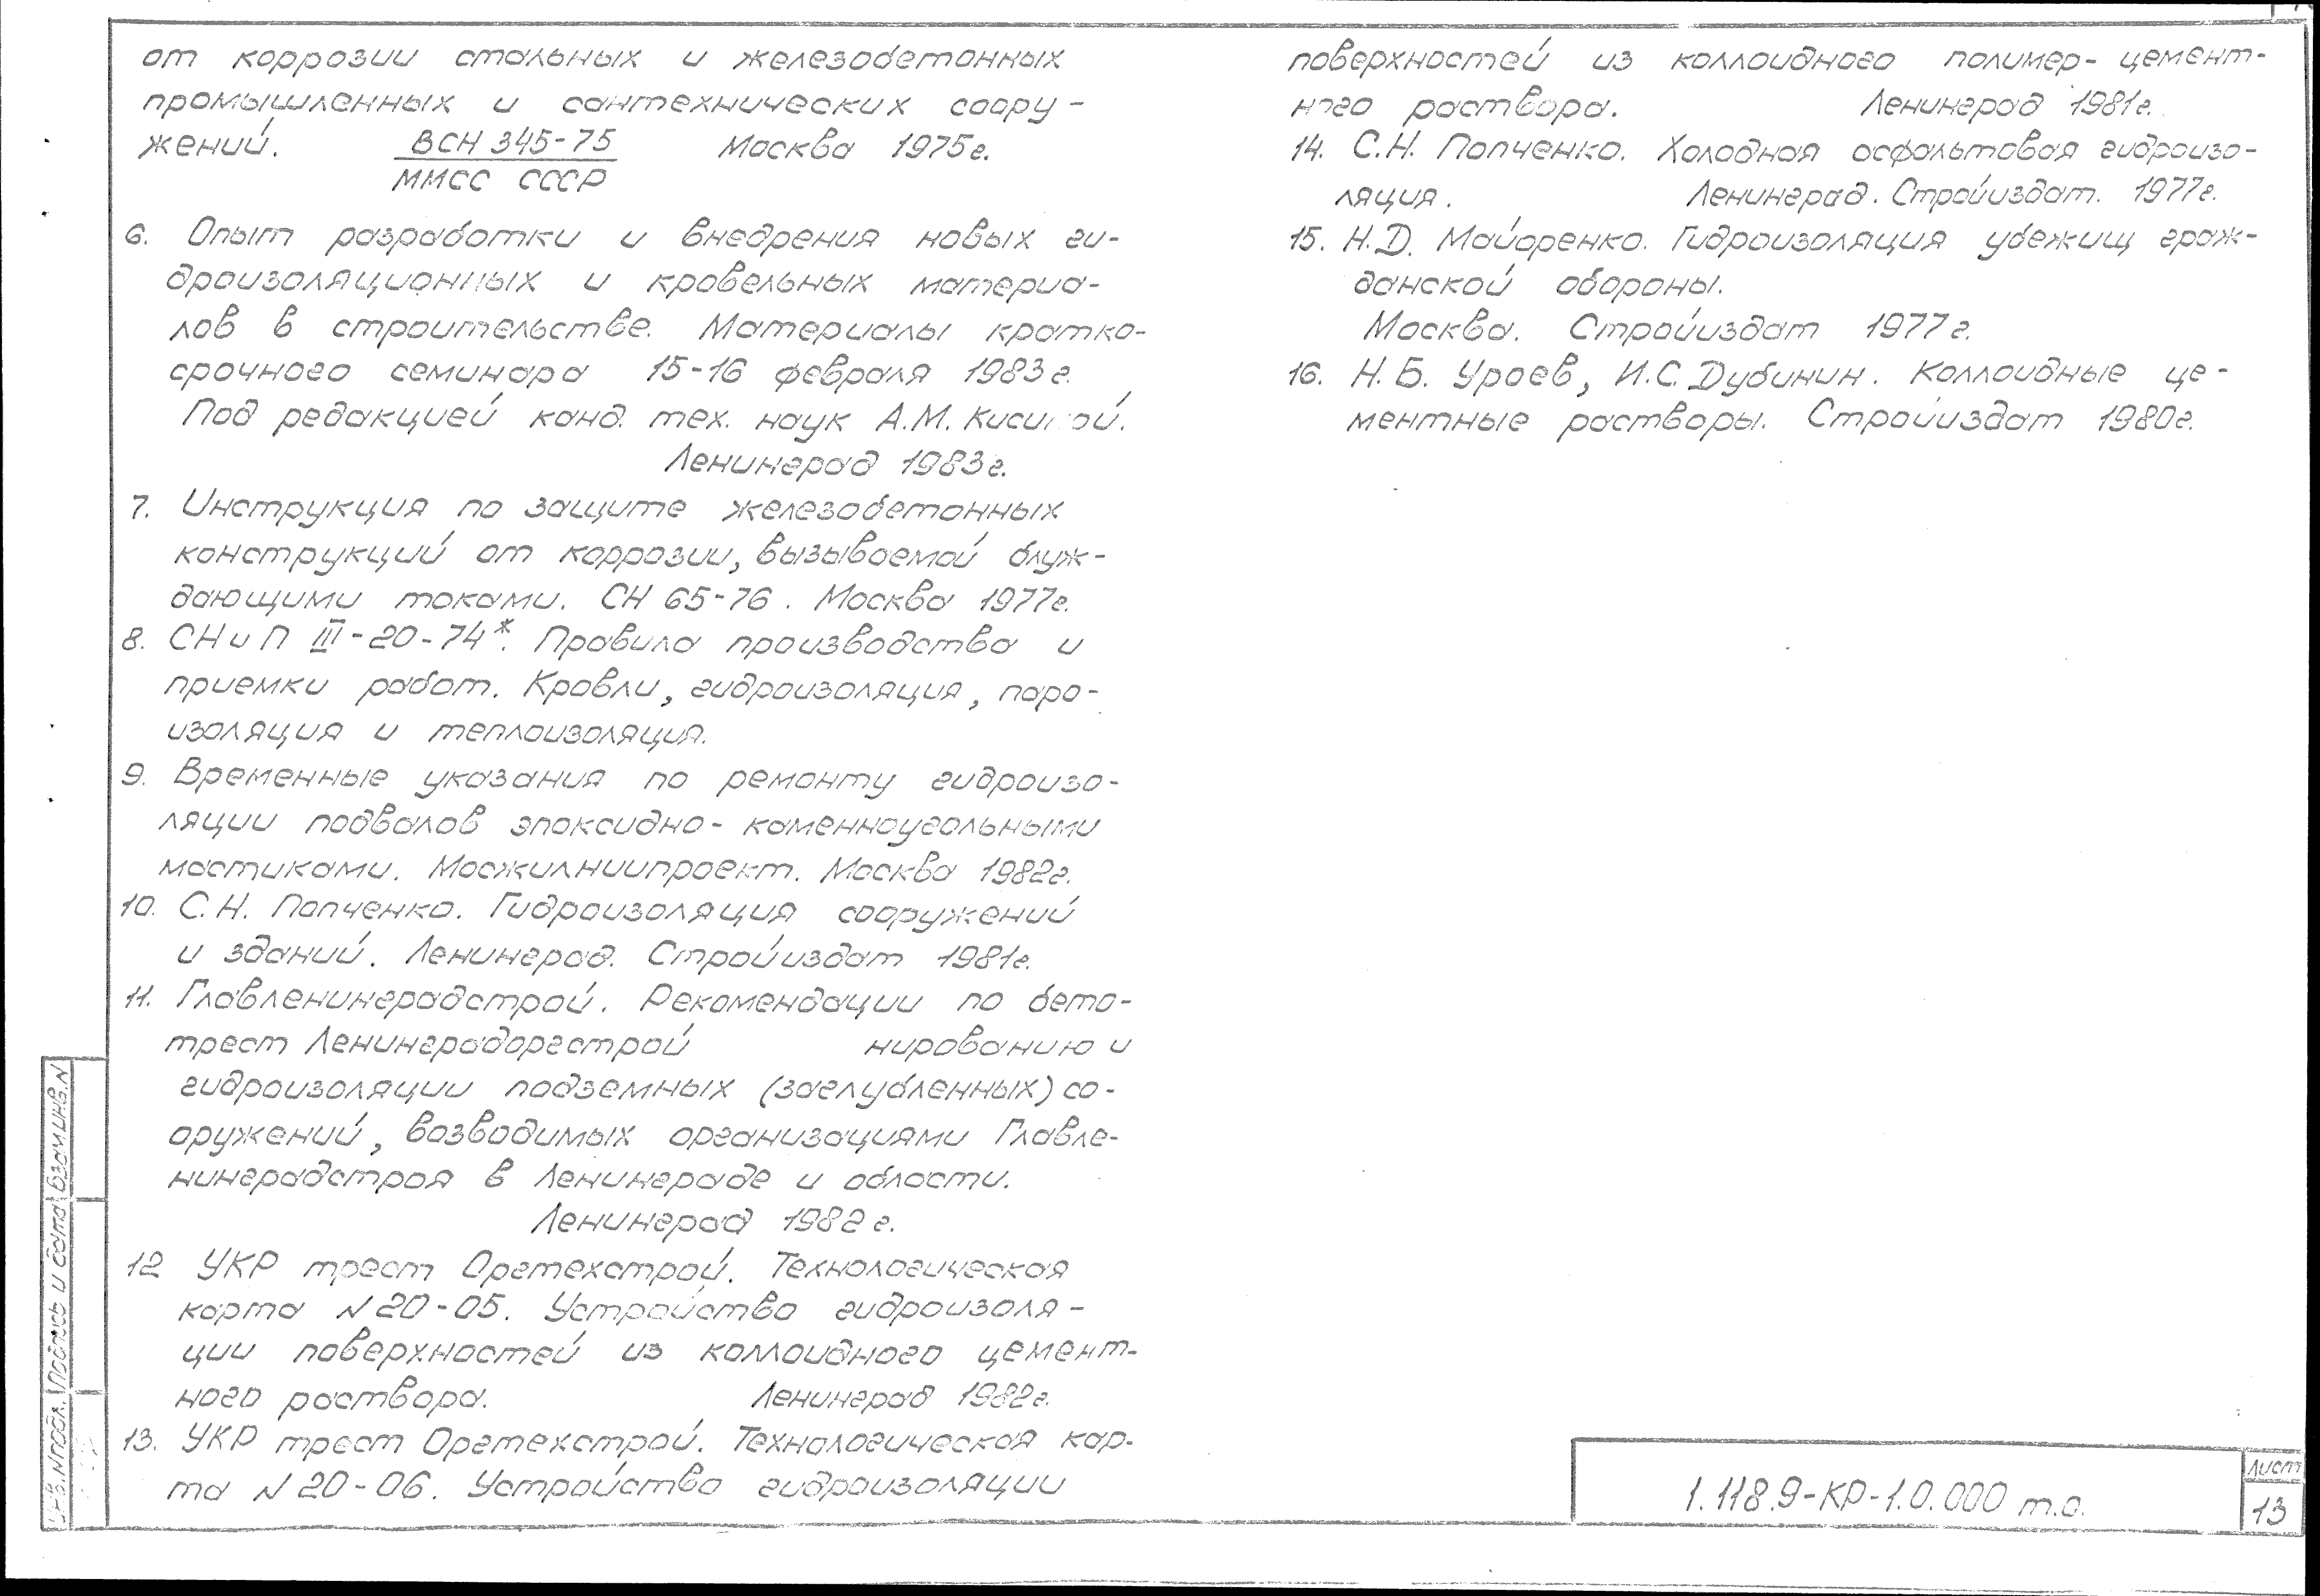 от коррозии стальных и железобетонных
промышленных и сантехнических соору-
жений. ВСН 345-75 Москва 1975г.
ММСС СССР
6. Опыт разработки и внедрения новых ги-
дроизоляционных и кровельных материа-
лов в строительстве. Материалы кратко-
срочного семинара 15-16 февраля 1983г.
Под редакцией канд. тех. наук А.М.
Ленинград 1983г.
7. Инструкция по защите железобетонных
конструкций от коррозии, вызываемой блуж-
дающими токами. СН 65-76. Москва 1977г.
8. СНиП III-20-74*. Правила производства и
приемки работ. Кровли, гидроизоляция, паро-
изоляция и теплоизоляция.
9. Временные указания по ремонту гидроизо-
ляции подвалов эпоксидно-каменноугольными
мастиками. Мосжилниипроект. Москва 1982г.
10. С.Н. Попченко. Гидроизоляция сооружений
и зданий. Ленинград. Стройиздат 1981г.
11. Главленинградстрой. Рекомендации по бето-
трест Ленинградоргстрой нированию и
гидроизоляции подземных (заглубленных) со-
оружений, возводимых организациями Главле-
нинградстроя в Ленинграде и области.
Ленинград 1982 г.
12 УКР трест Оргтехстрой. Технологическая
карта N20-05. Устройство гидроизоля-
ции поверхностей из коллоидного цемент-
ного раствора. Ленинград 1982г.
13. УКР трест Оргтехстрой. Технологическая кар-
та N20-06. Устройство гидроизоляции
поверхностей из коллоидного полимер-цемент-
ного раствора. Ленинград 1981г.
14. С.Н. Попченко. Холодная асфальтовая гидроизо-
ляция. Ленинград. Стройиздат. 1977г.
15. Н.Д. Майоренко. Гидроизоляция убежищ граж-
данской обороны.
Москва. Стройиздат 1977г.
16. Н.Б. Урьев, И.С. Дубинин. Коллоидные це-
ментные растворы. Стройиздат 1980г.
Инв. N подл. Подпись и дата Взам инв. N
1.118.9-КР-1.0.000 т.о.
Лист
13